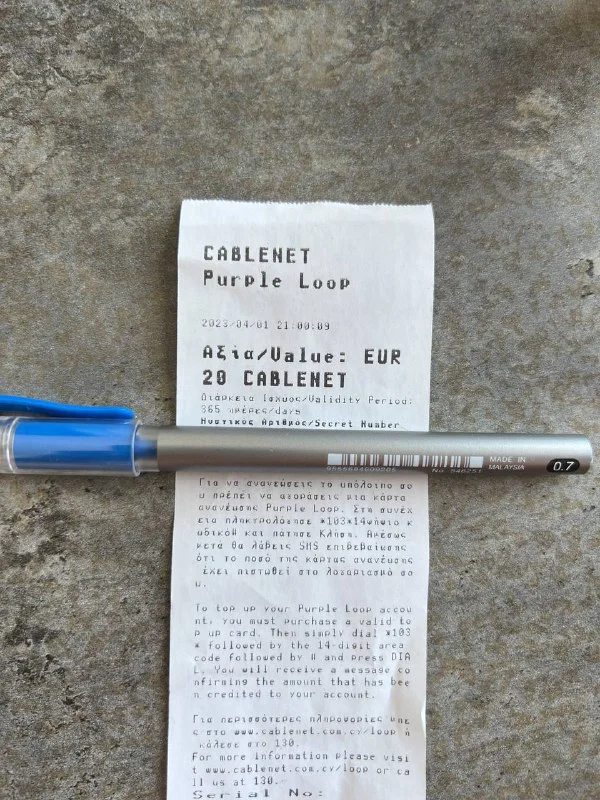 CABLENET
Purple Loop
2023/04/01 21:00:09
Αξία/Value: EUR
20 CABLENET
Διάρκεια Ισχύος/Validity Period:
365 ημέρες/days
Μυστικός Αριθμός/Secret Number
9555684009205 No. 546251
MADE IN
MALAYSIA
0.7
Για να ανανεώσεις το υπόλοιπο σο
υ πρέπει να αγοράσεις μια κάρτα
ανανέωσης Purple Loop. Στη συνέχ
εια πληκτρολόγησε *103*14ψήφιο κ
ωδικο# και πάτησε Κλήση. Αμέσως
μετά θα λάβεις SMS επιβεβαίωσης
ότι το ποσό της κάρτας ανανέωσης
έχει πιστωθεί στο λογαριασμό σο
υ.
To top up your Purple Loop accou
nt, you must purchase a valid to
p up card. Then simply dial *103
* followed by the 14-digit area
code followed by # and press DIA
L. You will receive a message co
nfirming the amount that has bee
n credited to your account.
Για περισσότερες πληροφορίες μπε
ς στο www.cablenet.com.cy/loop ή
κάλεσε στο 130.
For more information please visi
t www.cablenet.com.cy/loop or ca
ll us at 130.
Serial No: